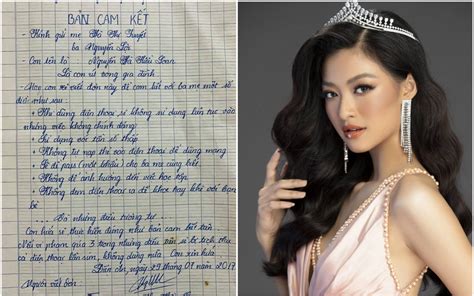 BẢN CAM KẾT
- Kính gửi mẹ Thị Tuyết
ba Nguyễn
- Con tên là Nguyễn Thị Loan
Là con út trong gia đình
- Nay con xin viết đơn này để cam kết với ba mẹ một số
điều như sau:
• Khi dùng điện thoại sẽ không sử dụng liên tục vào
những việc không chính đáng.
• Sử dụng với tần số thấp
• Không tự nạp thẻ vào điện thoại để dùng mạng
• Sẽ để pass (mật khẩu) cho ba mẹ cùng biết.
• Không để ảnh hưởng đến việc học tập
• Không đem điện thoại ra để khoe hay khè với bạn
bè
Đó là những điều tương tự
Con hứa sẽ thực hiện đúng như bản cam kết trên
Nếu vi phạm quá 3 trong những điều trên sẽ bị tịch thu
cả điện thoại lẫn sim, không dùng nữa. Con xin hứa
ngày 29 tháng 01 năm 2017
Người viết bản